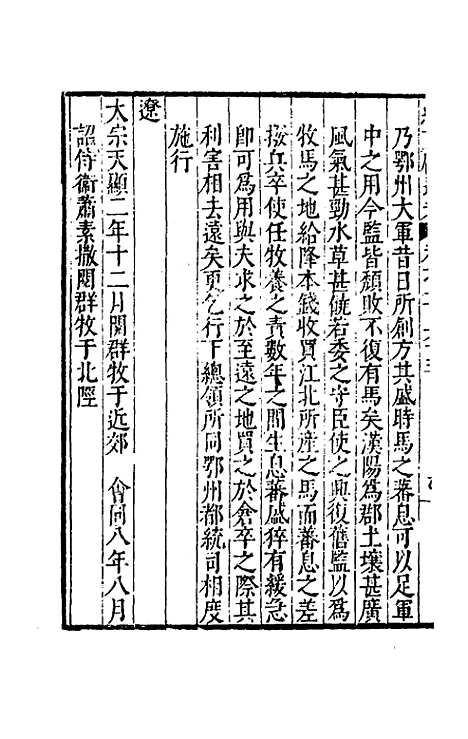 乃鄂州大軍昔日所創方其盛時馬之蕃息可以足軍
中之用今監皆頹敗不復有馬矣漢陽為郡土壤甚廣
風氣甚勁水草甚饒若委之守臣使之興復舊監以為
牧馬之地給降本錢收買江北所産之馬而蕃息之差
撥兵卒使任牧養之責數年之間生息蕃盛猝有緩急
卽可為用與夫求之於至遠之地買之於倉卒之際其
利害相去遠矣更乞行下總領所同鄂州都統司相度
施行
遼
太宗天顯二年十二月閱群牧于近郊　會同八年八月
詔侍衞蕭素撒閱群牧于北陘